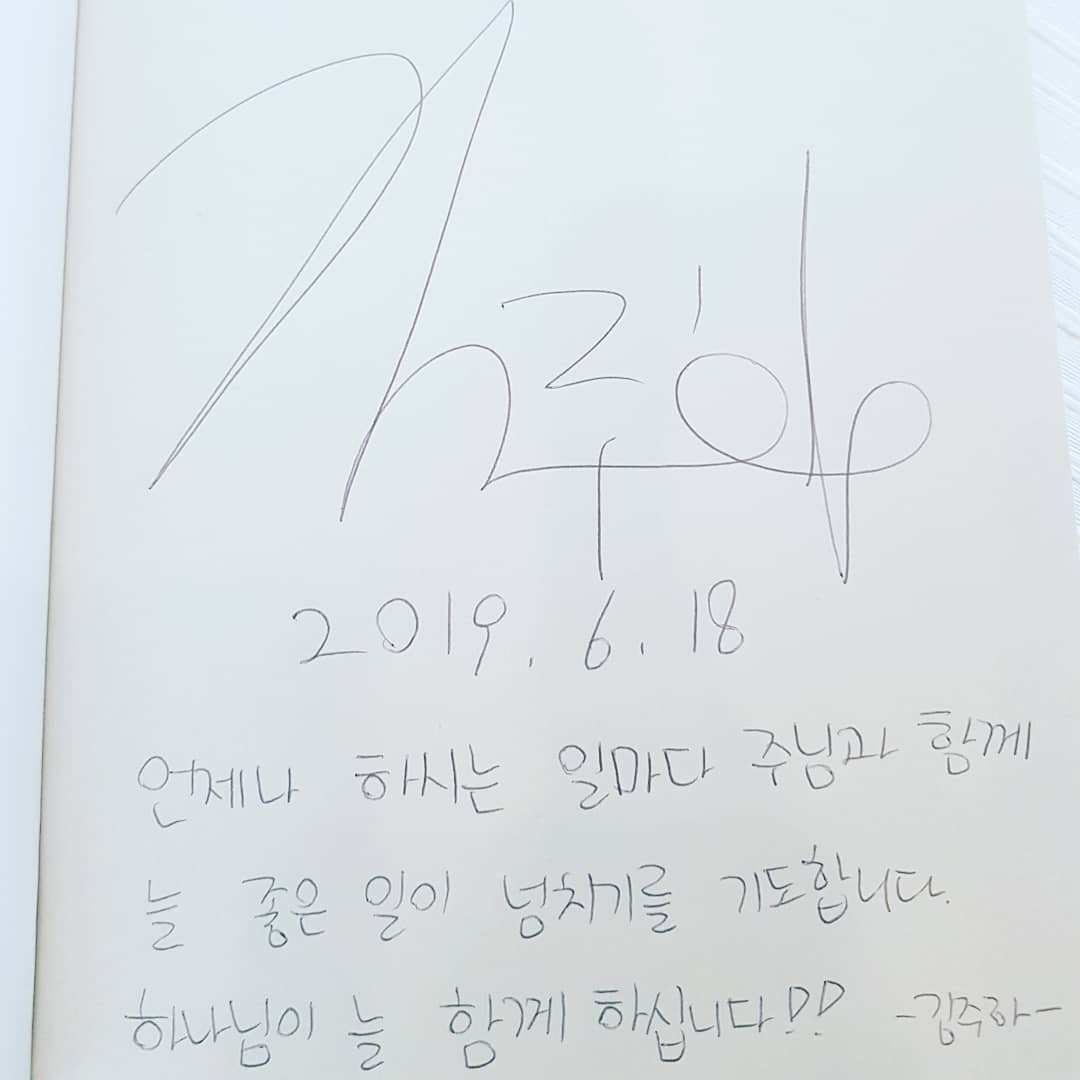 2019. 6. 18
언제나 하시는 일마다 주님과 함께
늘 좋은 일이 넘치기를 기도합니다.
하나님이 늘 함께 하십니다!! -김주하-